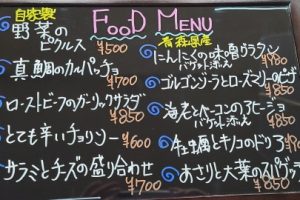 FOOD MENU
自家製
野菜の
ピクルス ¥500
真鯛のカルパッチョ
¥780
ローストビーフのガーリックサラダ
¥850
とても辛いチョリソー
¥600
サラミとチーズの盛り合わせ
¥700
青森県産
にんにくの味噌グラタン
バケット添え ¥780
ゴルゴンゾーラとローズマリーのピザ
¥850
海老とベーコンのアヒージョ
バケット添え ¥850
牡蠣とキノコのドリア
あさりと大葉のスパゲッ
¥850